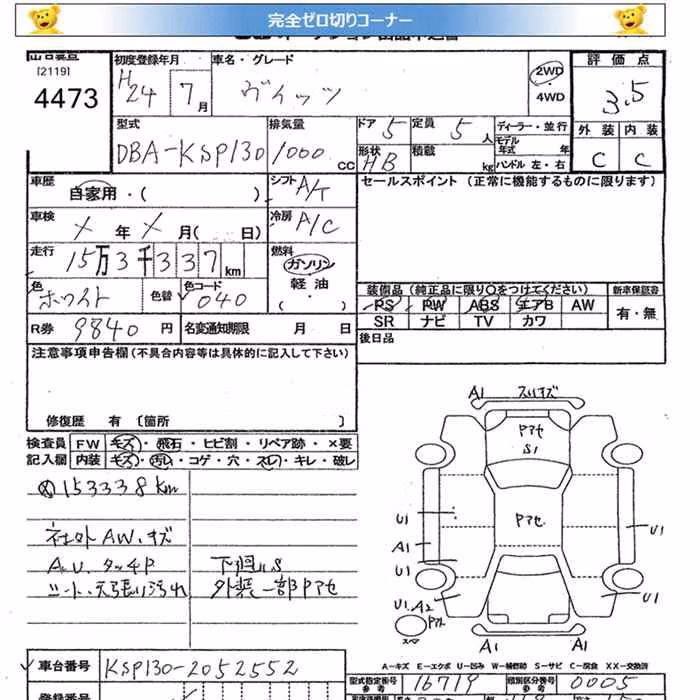 完全ゼロ切りコーナー
[2119]
4473
初度登録年月
H24 7月
車名・グレード
ヴィッツ
2WD
・
4WD
評価点
3.5
外装 内装
C C
型式
DBA-KSP130
排気量
1000 CC
ドア 5
定員 5 人
形状 HB
積載 kg
ディーラー・並行
モデル年式 年
ハンドル 左・右
車歴
自家用・( )
シフト A/T
車検
X 年 X 月( 日)
冷房 A/C
走行
15万3千337km
燃料
ガソリン
軽油
・
( )
色
ホワイト
色替
色コード
040
R券 9840 円
名変通知期限 月 日
セールスポイント (正常に機能するものに限ります)
装備品 (純正品に限り○をつけてください)
新車保証書
PS PW ABS エアB AW
有・無
SR ナビ TV カワ
後日品
注意事項申告欄(不具合内容等は具体的に記入して下さい)
修復歴 有 [箇所 ]
検査員 FW キズ・飛石・ヒビ割・リペア跡・×要
記入欄 内装 キズ・汚れ・コゲ・穴・スレ・キレ・破レ
153338km
社外AW.キズ
A.U.タッチP
シート.天張り汚れ
下回りS
外装一部Pアセ
A1 スリキズ
Pアセ
S1
Pアセ
U1
A1
U1
U1
U1.A2
U1
A1 A1
A-キズ E-エクボ U-凹み W-補修跡 S-サビ C-腐食 XX-交換済
車台番号 KSP130-2052552
型式指定番号
参考
16719
類別区分番号
参考
0005
登録番号